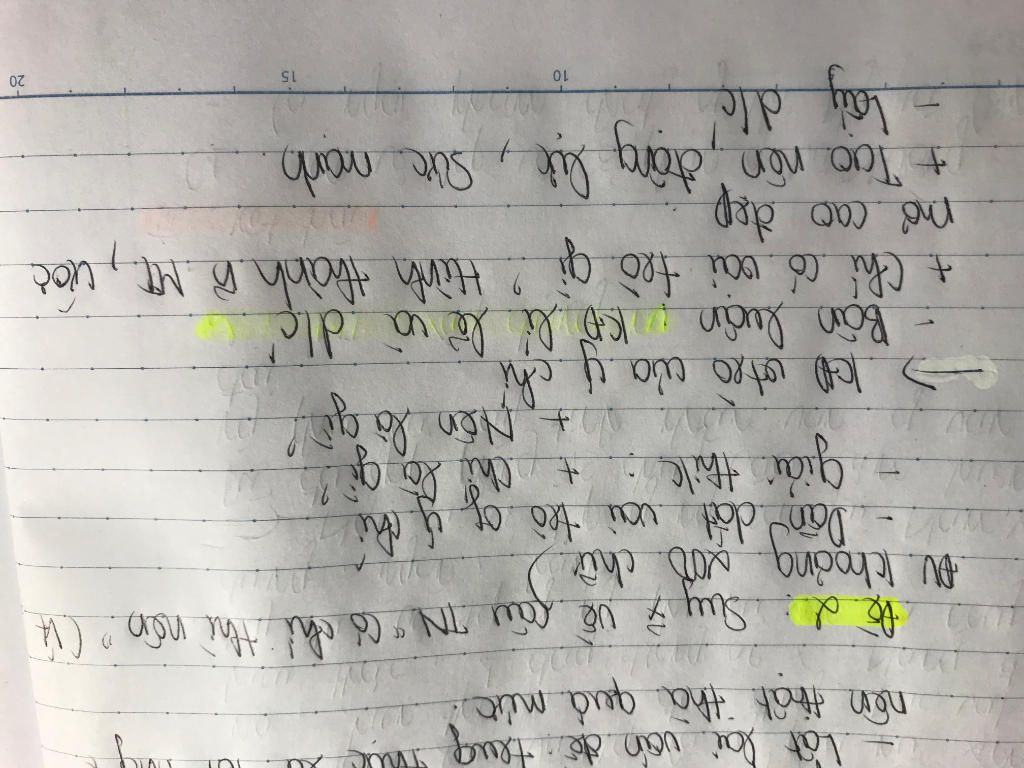 - Lật lại vấn đề: trung thực là
nên thật thà quá mức.
Đề 2: Suy ≠ về câu TN "Có chí thì nên" (Vt
ĐV khoảng 200 chữ)
- Dẫn dắt vai trò of ý chí
- Giải thik: + Chí là gì?
+ Nên là gì?
→ KĐ vtrò của ý chí
- Bàn luận: KĐ lí lẽ và d/c
+ Chí có vai trò gì? Hình thành nên MĐ, ước
mơ cao đẹp
+ Tạo nên động lực, sức mạnh
- Lấy d/c
10
15
20